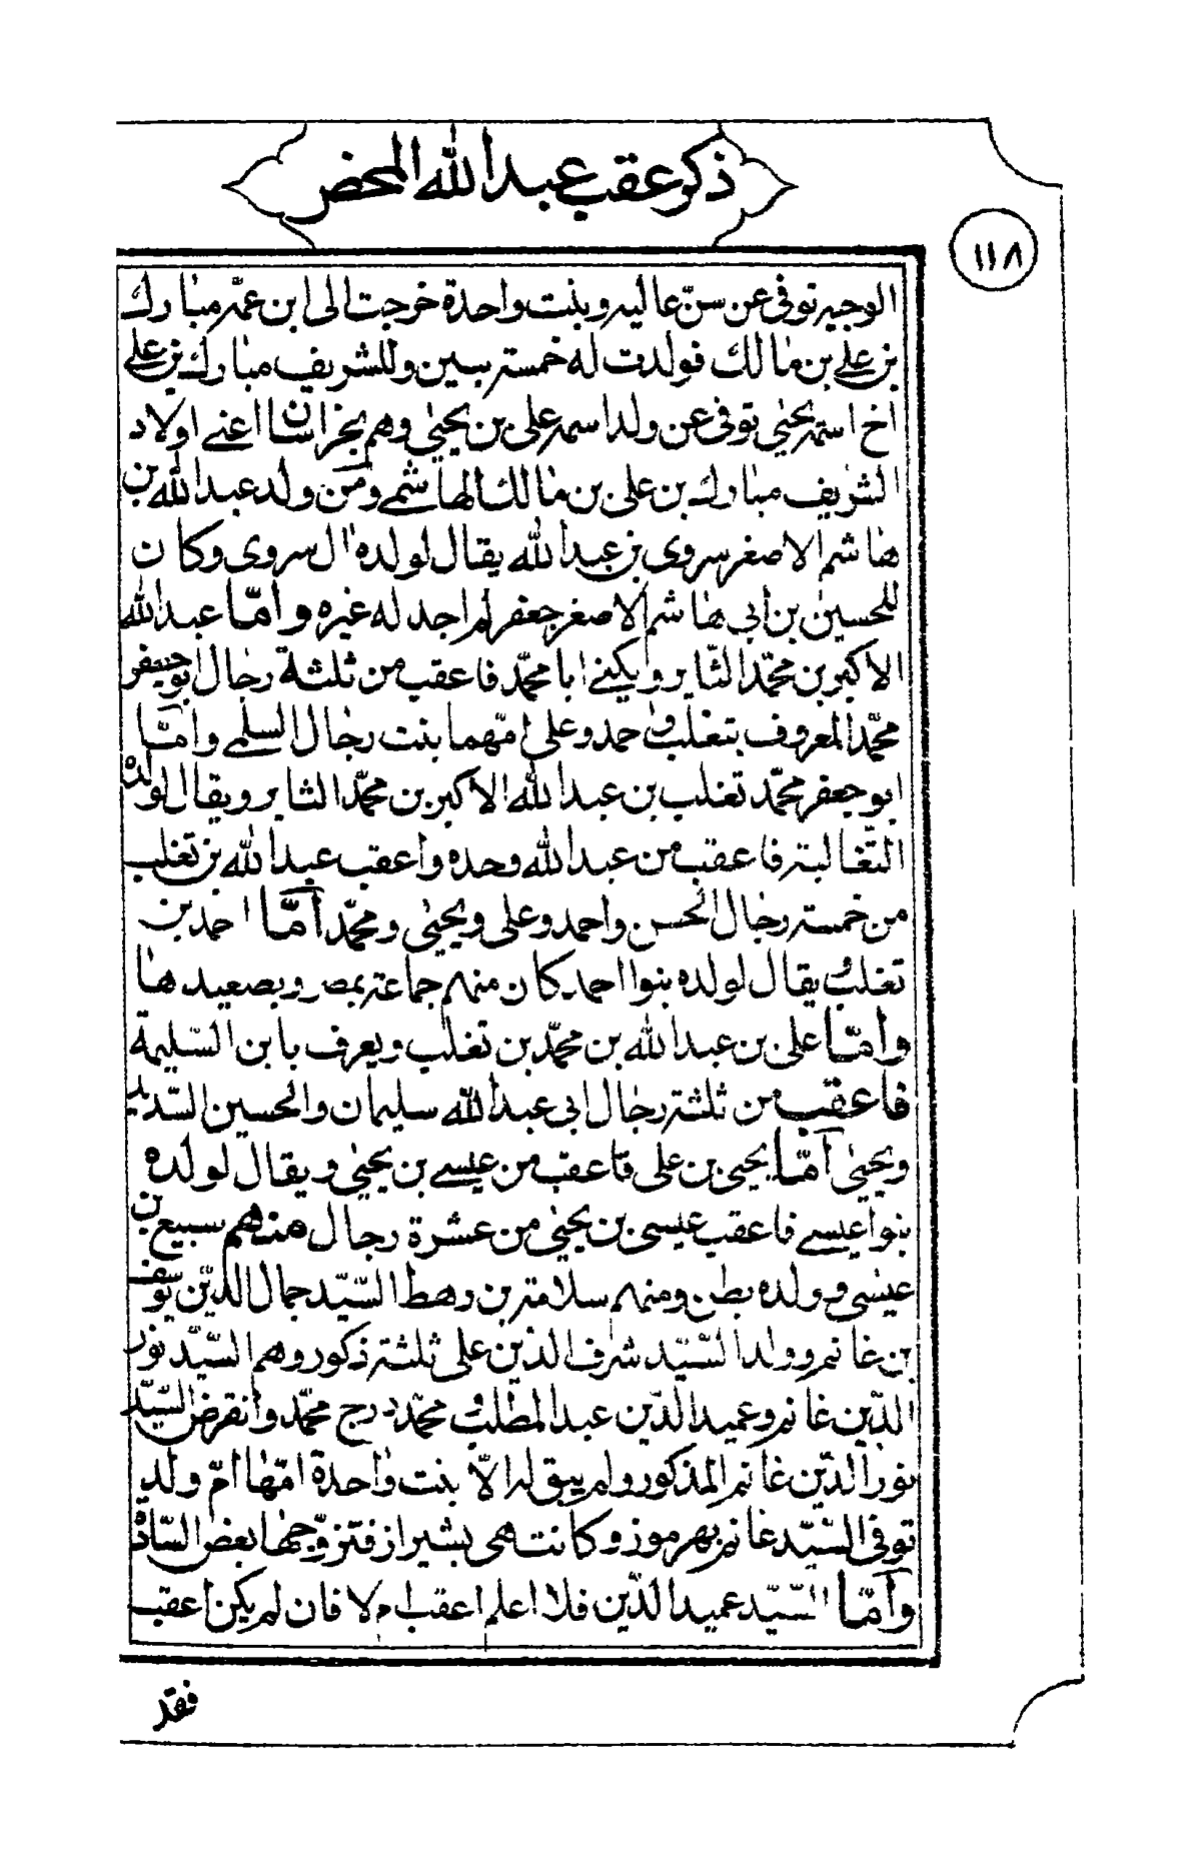 ذكر عقب عبد الله المحض
١١٨
الوجيه توفى عن سنّ عاليه وبنت واحدة خرجت الى ابن عمّه مبارك
بن على بن مالك فولدت له خمسة بنين وللشريف مبارك بن على
اخ اسمه يحيى توفى عن ولد اسمه على بن يحيى وهم بخراسان اعنى اولاد
الشريف مبارك بن على بن مالك الهاشمى ومن ولد عبد الله بن
هاشم الاصغر سروى بن عبد الله يقال لولده ال سروى وكان
للحسين بن ابى هاشم الاصغر جعفر لم اجد له غيره وامّا عبد الله
الاكبر بن محمّد الثاير ويكنى ابا محمّد فاعقب من ثلثة رجال ابو جعفر
محمّد المعروف بتغلب واحمد وعلى امّهما بنت رجال السلمى وامّا
ابو جعفر محمّد تغلب بن عبد الله الاكبر بن محمّد الثاير ويقال لولده
التّغالبة فاعقب من عبد الله وحده واعقب عبد الله بن تغلب
من خمسة رجال الحسن واحمد وعلى ويحيى ومحمّد امّا احمد بن
تغلب يقال لولده بنوا احمد كان منهم جماعة بمصر وبصعيدها
وامّا على بن عبد الله بن محمّد بن تغلب ويعرف بابن السّليمة
فاعقب من ثلثة رجال ابى عبد الله سليمان والحسين السّديد
ويحيى امّا يحيى بن على فاعقب من عيسى بن يحيى ويقال لولده
بنوا عيسى فاعقب عيسى بن يحيى من عشرة رجال منهم سبيع بن
عيسى وولده بطن ومنهم سلامة بن رهط السّيّد جمال الدّين يوسف
بن غانم وولد السّيّد شرف الدّين على ثلثة ذكور وهم السّيّد نور
الدّين غانم وعميد الدّين عبد المطلب ومحمّد درج محمّد وانقرض السّيّد
نور الدّين غانم المذكور ولم يبق له الّا بنت واحدة امّها امّ ولد
توفى السّيّد غانم بهرموز وكانت هى بشيراز فتزوّجها بعض السّادة
وامّا السّيّد عميد الدّين فلا اعلم اعقب ام لا فان لم يكن اعقب
فقد